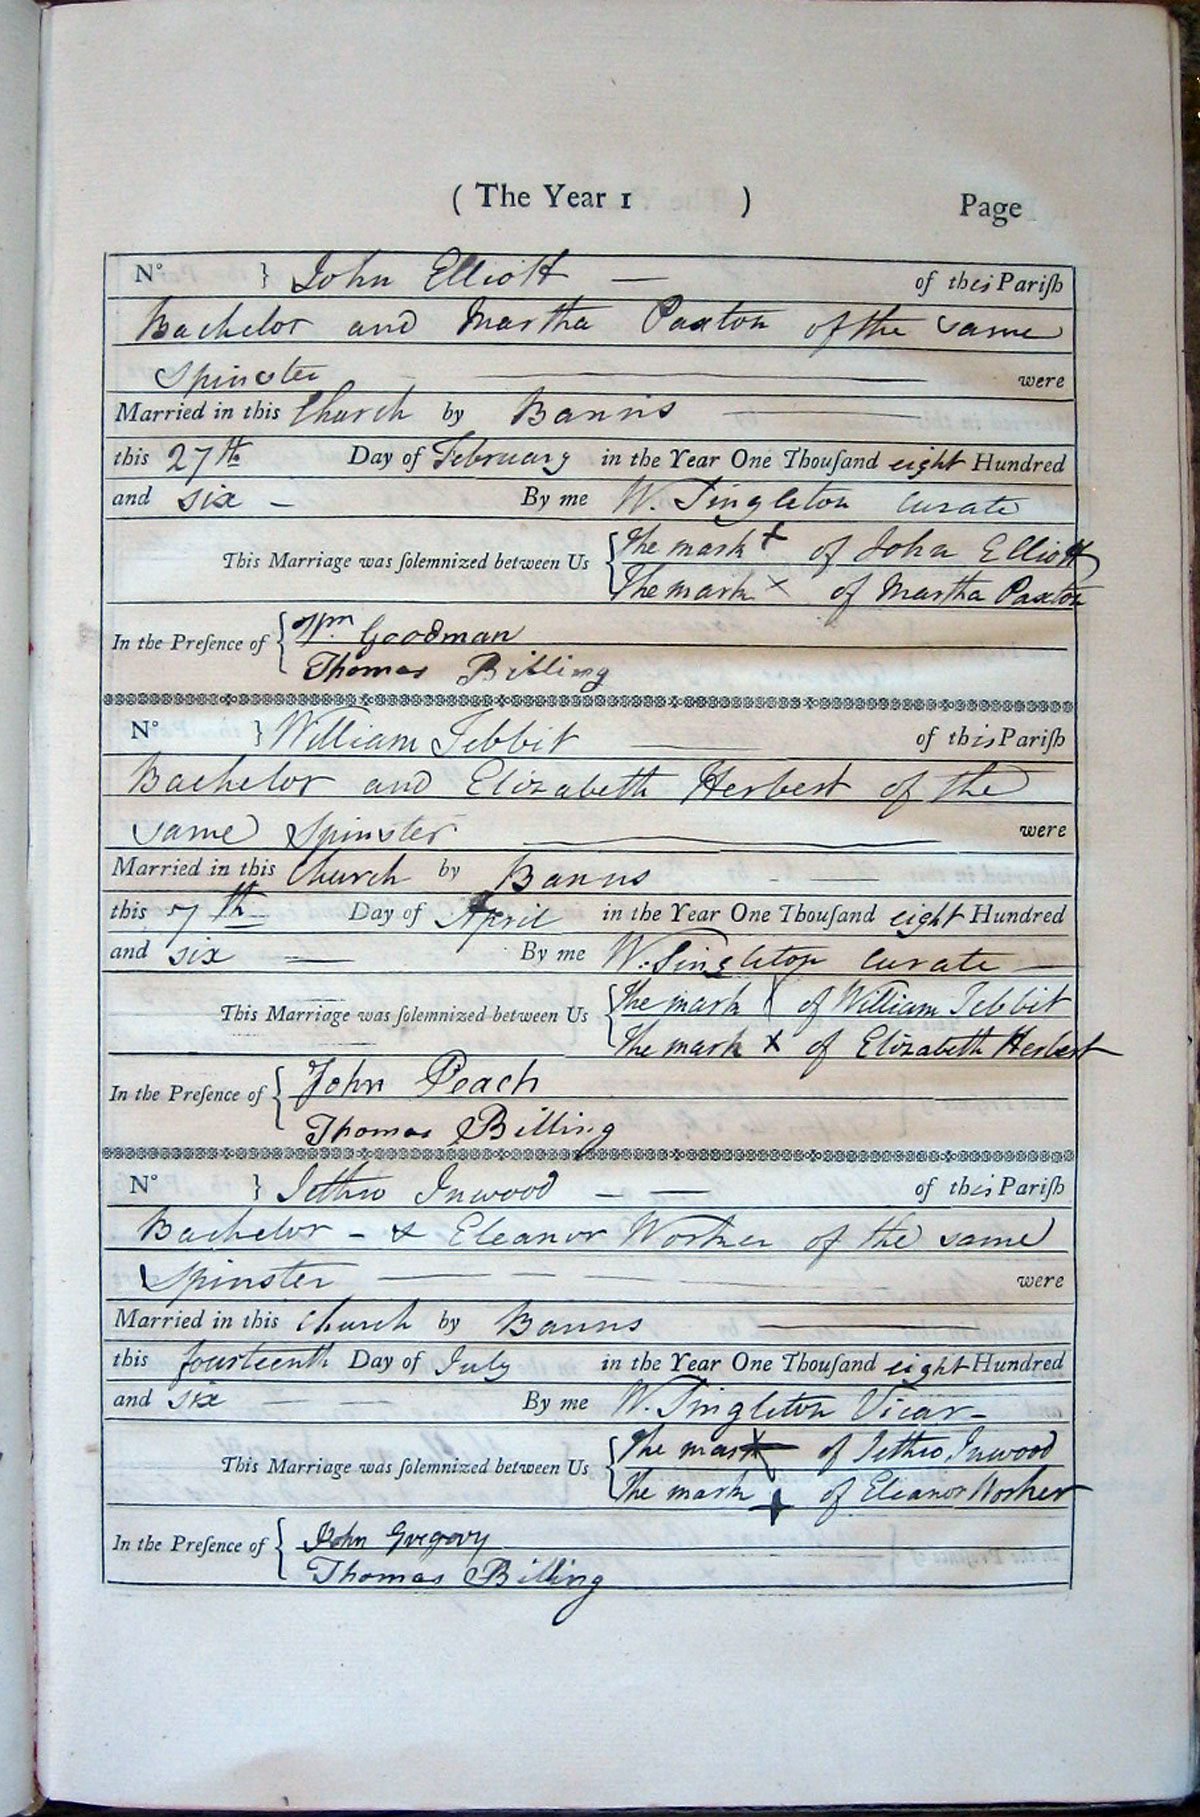 ( The Year 1 ) Page
No } John Elliott — of this Pariſh
Bachelor and Martha Paxton of the same
Spinster — were
Married in this Church by Banns —
this 27th Day of February in the Year One Thouſand eight Hundred
and six - By me W. Singleton Curate
This Marriage was ſolemnized between Us { The mark + of John Elliott
The mark x of Martha Paxton
In the Preſence of { Wm Goodman
Thomas Billing
No } William Tebbit — of this Pariſh
Bachelor and Elizabeth Herbert of the
same Spinster — were
Married in this Church by Banns - —
this 7th Day of April in the Year One Thouſand eight Hundred
and six — By me W. Singleton Curate —
This Marriage was ſolemnized between Us { The mark x of William Tebbit
The mark x of Elizabeth Herbert
In the Preſence of { John Peach
Thomas Billing
No } Jethro Inwood - — of this Pariſh
Bachelor - & Eleanor Worker of the same
Spinster — - — were
Married in this Church by Banns —
this fourteenth Day of July in the Year One Thouſand eight Hundred
and six — — By me W. Singleton Vicar -
This Marriage was ſolemnized between Us { The mark x of Jethro Inwood
The mark + of Eleanor Worker
In the Preſence of { John Gregory
Thomas Billing